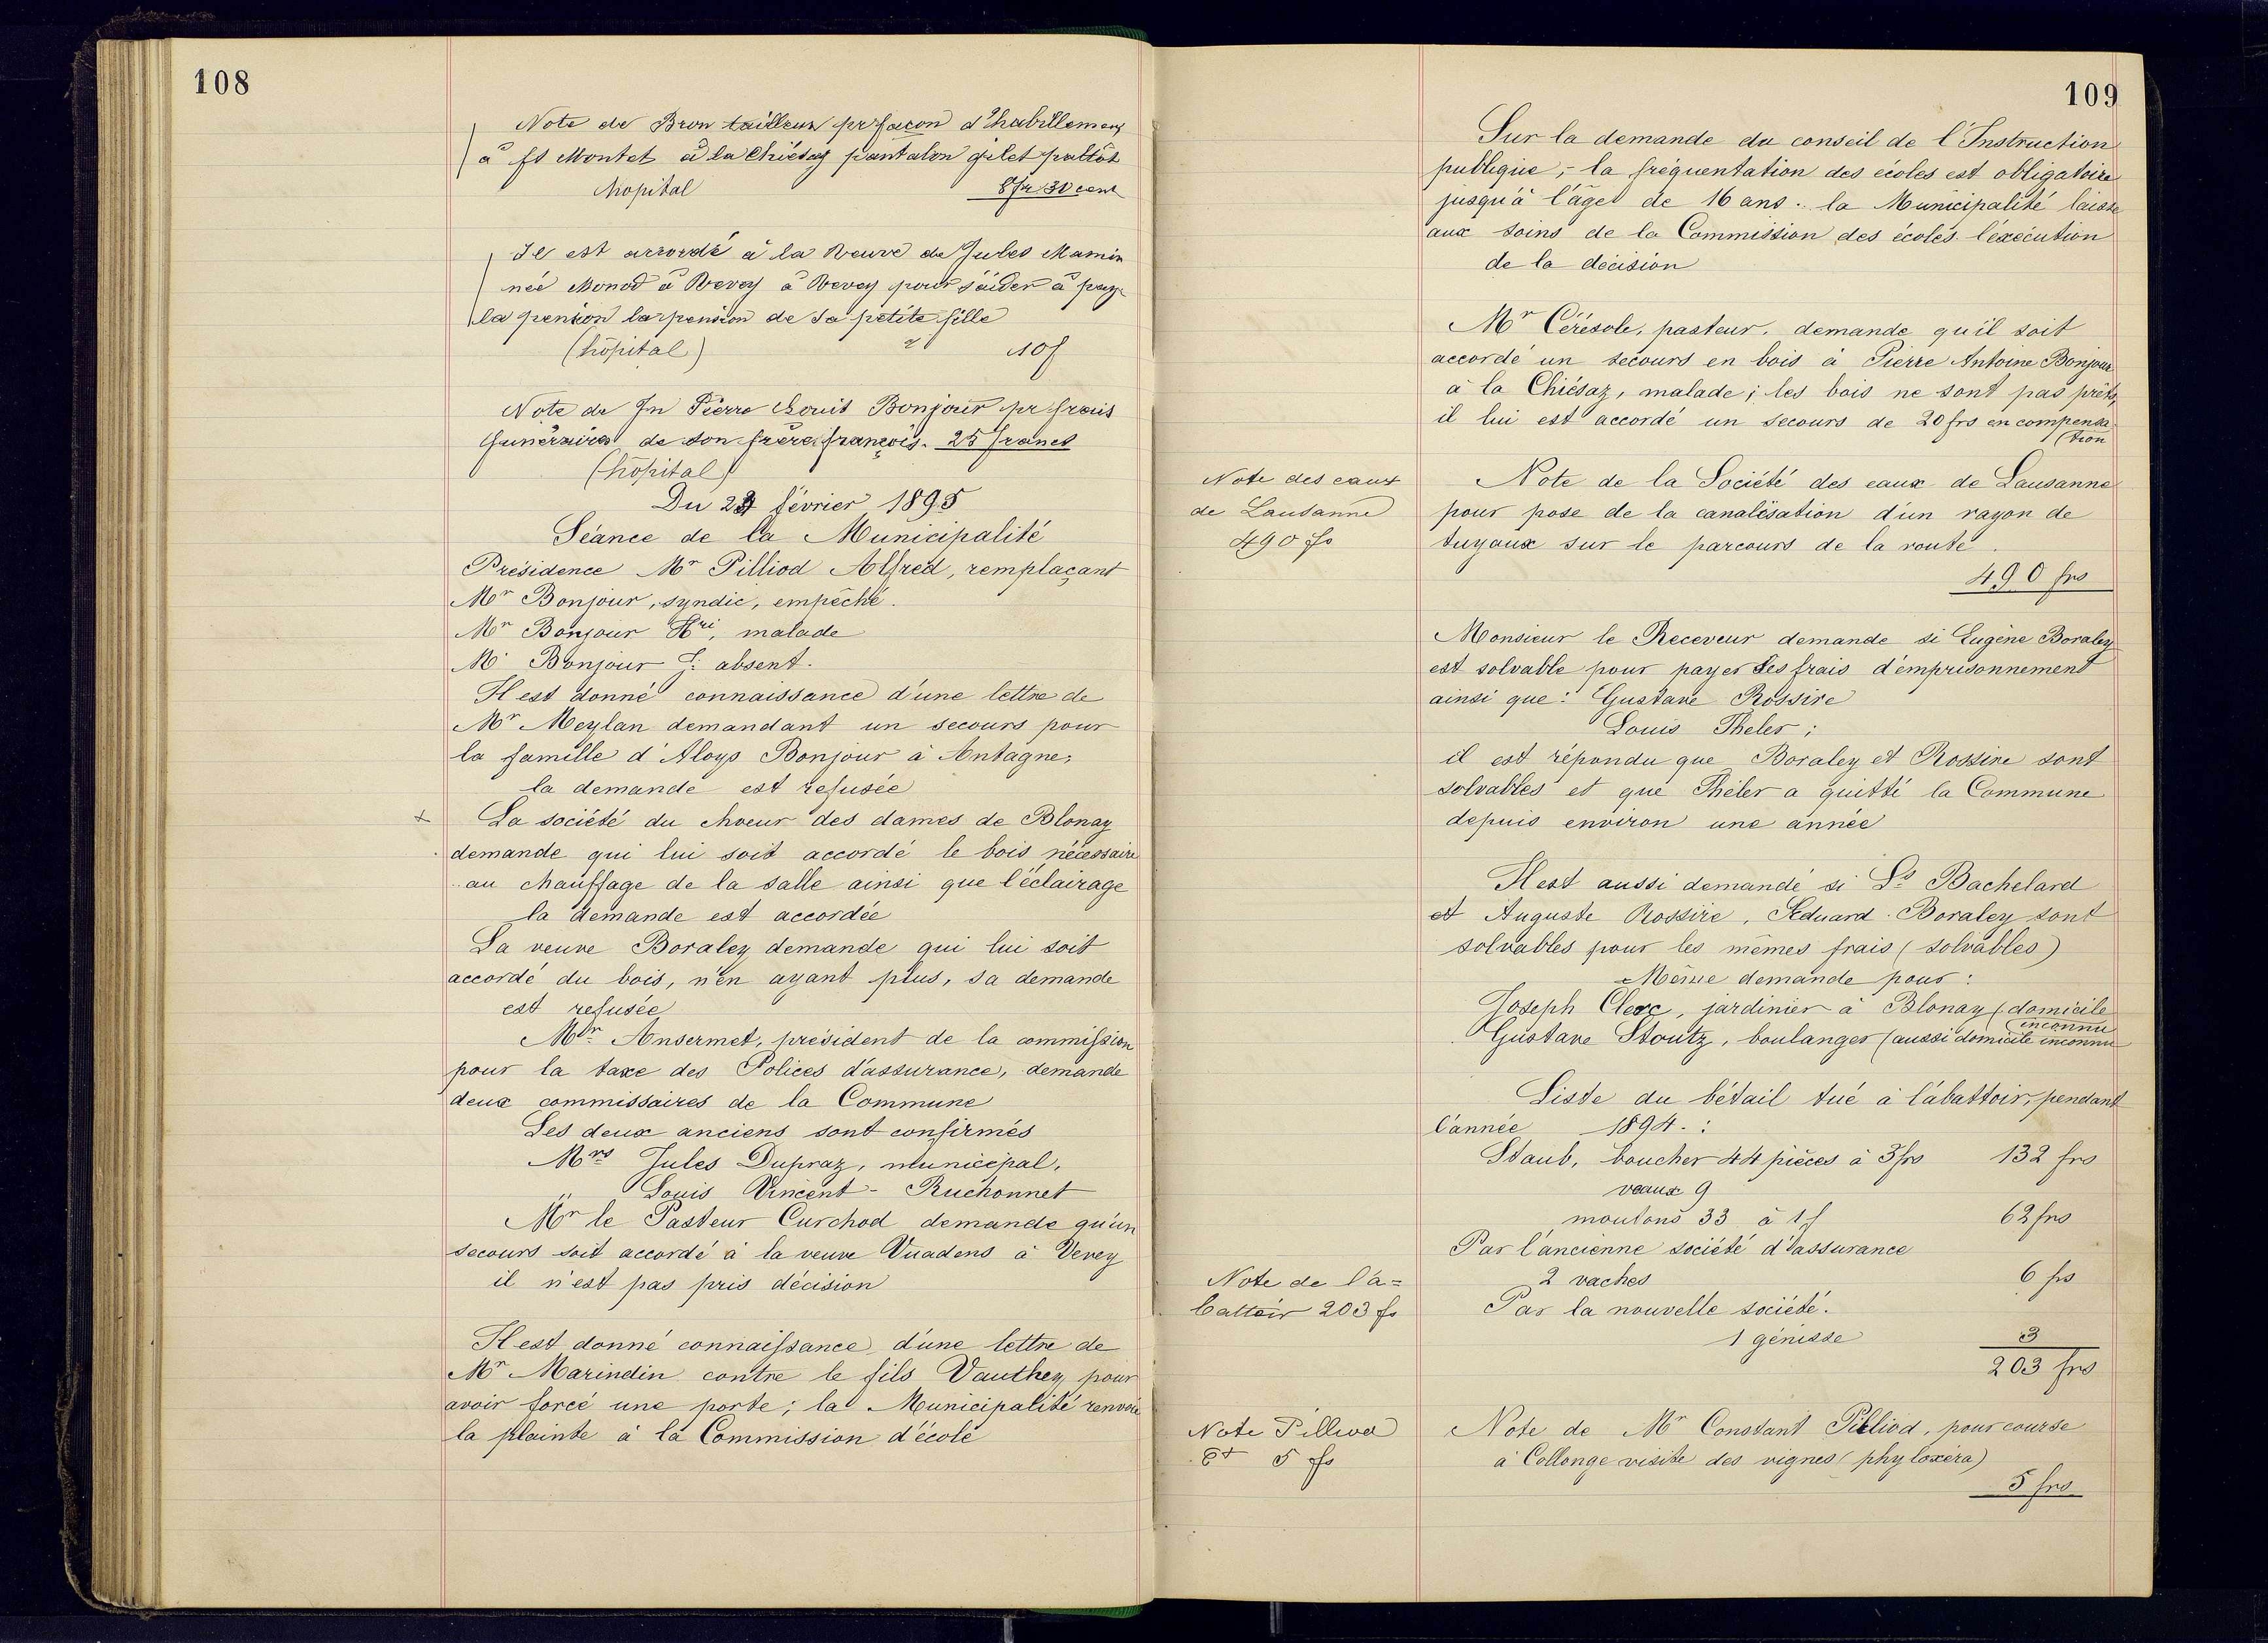 108
Note de Bron tailleur pr façon d'habillemens
à fs Montet à la Chiésaz pantalon gilet paltôt
hopital 8 fr 30 cent
Il est accordé à la Veuve de Jules Mamin
née Monod à Vevey à Vevey pour s'aider à paye
la pension la pension de sa petite fille
(hôpital) 10 f
Note de Jn Pierre Louis Bonjour pr frais
funéraires de son frère françois. 25 francs
(hôpital)
Du février 1895
Séance de la Municipalité
Présidence Mr Pilliod Alfred, remplaçant
Mr Bonjour, syndic, empêché.
Mr Bonjour Hri, malade
Mr Bonjour J: absent.
Il est donné connaissance d'une lettre de
Mr Meylan demandant un secours pour
la famille d'Aloys Bonjour à Antagne;
la demande est refusée
+ La société du choeur des dames de Blonay
demande qui lui soit accordé le bois nécessaire
au chauffage de la salle ainsi que l'éclairage
la demande est accordée
La veuve Boraley demande qui lui soit
accordé du bois, n'en ayant plus, sa demande
est refusée
Mr Ansermet, président de la commission
pour la taxe des Polices d'assurance, demande
deux commissaires de la Commune
Les deux anciens sont confirmés
Mrs Jules Dupraz, municipal,
" Louis Vincent - Ruchonnet
Mr le Pasteur Curchod demande qu'un
secours soit accordé à la veuve Vuadens à Vevey
il n'est pas pris décision
Il est donné connaissance d'une lettre de
Mr Marindin contre le fils Vauthey pour
avoir forcé une porte; la Municipalité renvoie
la plainte à la Commission d'école
109
Sur la demande du conseil de l'Instruction
publique, - la fréquentation des écoles est obligatoire
jusqu'à l'âge de 16 ans. la Municipalité laisse
aux soins de la Commission des écoles l'exécution
de la décision
Mr Cérésole, pasteur, demande qu'il soit
accordé un secours en bois à Pierre Antoine Bonjour
à la Chiésaz, malade; les bois ne sont pas prêts,
il lui est accordé un secours de 20 frs en compensa
(tion
Note des eaux
de Lausanne
490 fs
Note de la Société des eaux de Lausanne
pour pose de la canalisation d'un rayon de
tuyaux sur le parcours de la route.
490 frs
Monsieur le Receveur demande si Eugène Boraley
est solvable pour payer ses frais d'emprisonnement
ainsi que: Gustave Rossire
Louis Theler;
il est répondu que Boraley et Rossire sont
solvables et que Théler a quitté la Commune
depuis environ une année
Il est aussi demandé si Ls Bachelard
et Auguste Rossire, Eduard Boraley sont
solvables pour les mêmes frais (solvables)
Même demande pour:
Joseph Clerc, jardinier à Blonay (domicile
(inconnu
Gustave Stoutz, boulanger (aussi domicile inconnu
Liste du bétail tué à l'abattoir, pendant
l'année 1894.:
Staub, boucher 44 pièces à 3 frs 132 frs
veaux 9
moutons 33 à 1 f 62 frs
Par l'ancienne société d'assurance
2 vaches 6 frs
Par la nouvelle société.
1 génisse 3
203 frs
Note de l'a=
battoir 203 fs
Note Pilliod
Ct 5 fs
Note de Mr Constant Pilliod, pour course
à Collonge visite des vignes (phyloxéra)
5 frs